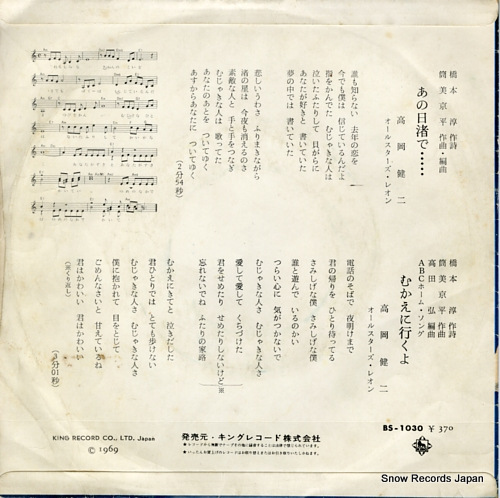 橋本淳 作詩
筒美京平 作曲・編曲
あの日渚で……
高岡健二
オールスターズ・レオン
誰も知らない 去年の恋を
今でも僕は 信じているんだよ
指をかんでた むじゃきな人は
泣いたふたりして 貝がらに
あなたが好きと 書いていた
夢の中では 書いていた
悲しいうわさ ふりまきながら
渚の星は 今夜も消えるのさ
素敵な人と 手と手をつなぎ
むじゃきな人は 歌ってた
あなたのあとを ついてゆく
あすからあなたに ついてゆく
(2分54秒)
橋本淳 作詩
筒美京平 作曲
高田弘 編曲
ABCホーム・ソング
むかえに行くよ
高岡健二
オールスターズ・レオン
電話のそばで 夜明けまで
君の帰りを ひとり待ってる
さみしげな僕 さみしげな僕
誰と遊んで いるのかい
つらい心に 気がつかないで
むじゃきな人さ むじゃきな人さ
愛して愛して くちづけた
君をせめたり せめたりしないけど※
忘れないでね ふたりの家路
むかえにきてと 泣きだした
君ひとりでは とても歩けない
むじゃきな人さ むじゃきな人さ
僕に抱かれて 目をとじて
ごめんなさいと 甘えているね
君はかわいい 君はかわいい
(※くり返し)
(3分01秒)
BS-1030 ¥370
KING RECORD CO., LTD. Japan
Ⓒ1969
発売元・キングレコード株式会社
Snow Records Japan